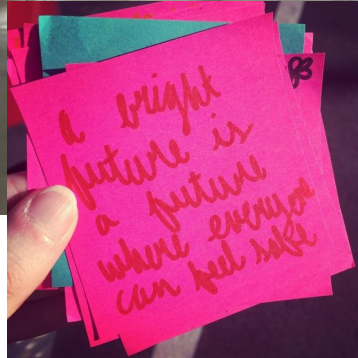 a bright
future is
a future
where everyone
can feel safe